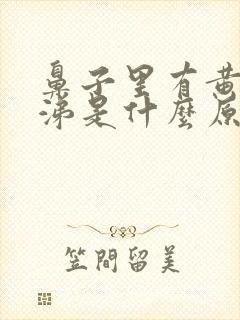 鼻子里有黄
涕是什麼原
笠間留美